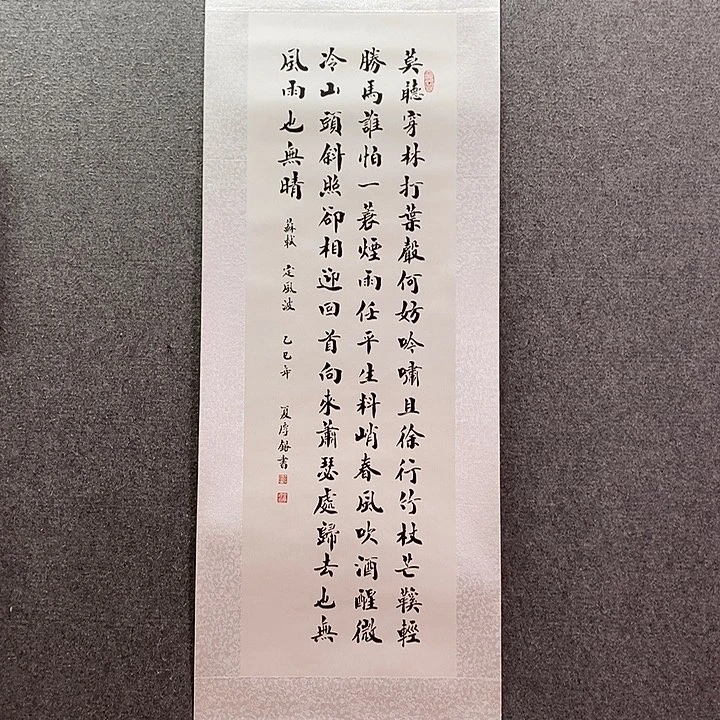 莫聽穿林打葉聲何妨吟嘯且徐行竹杖芒鞵輕
勝馬誰怕一蓑煙雨任平生料峭春風吹酒醒微
冷山頭斜照卻相迎回首向來蕭瑟處歸去也無
風雨也無晴
蘇軾 定風波 乙巳年 夏書